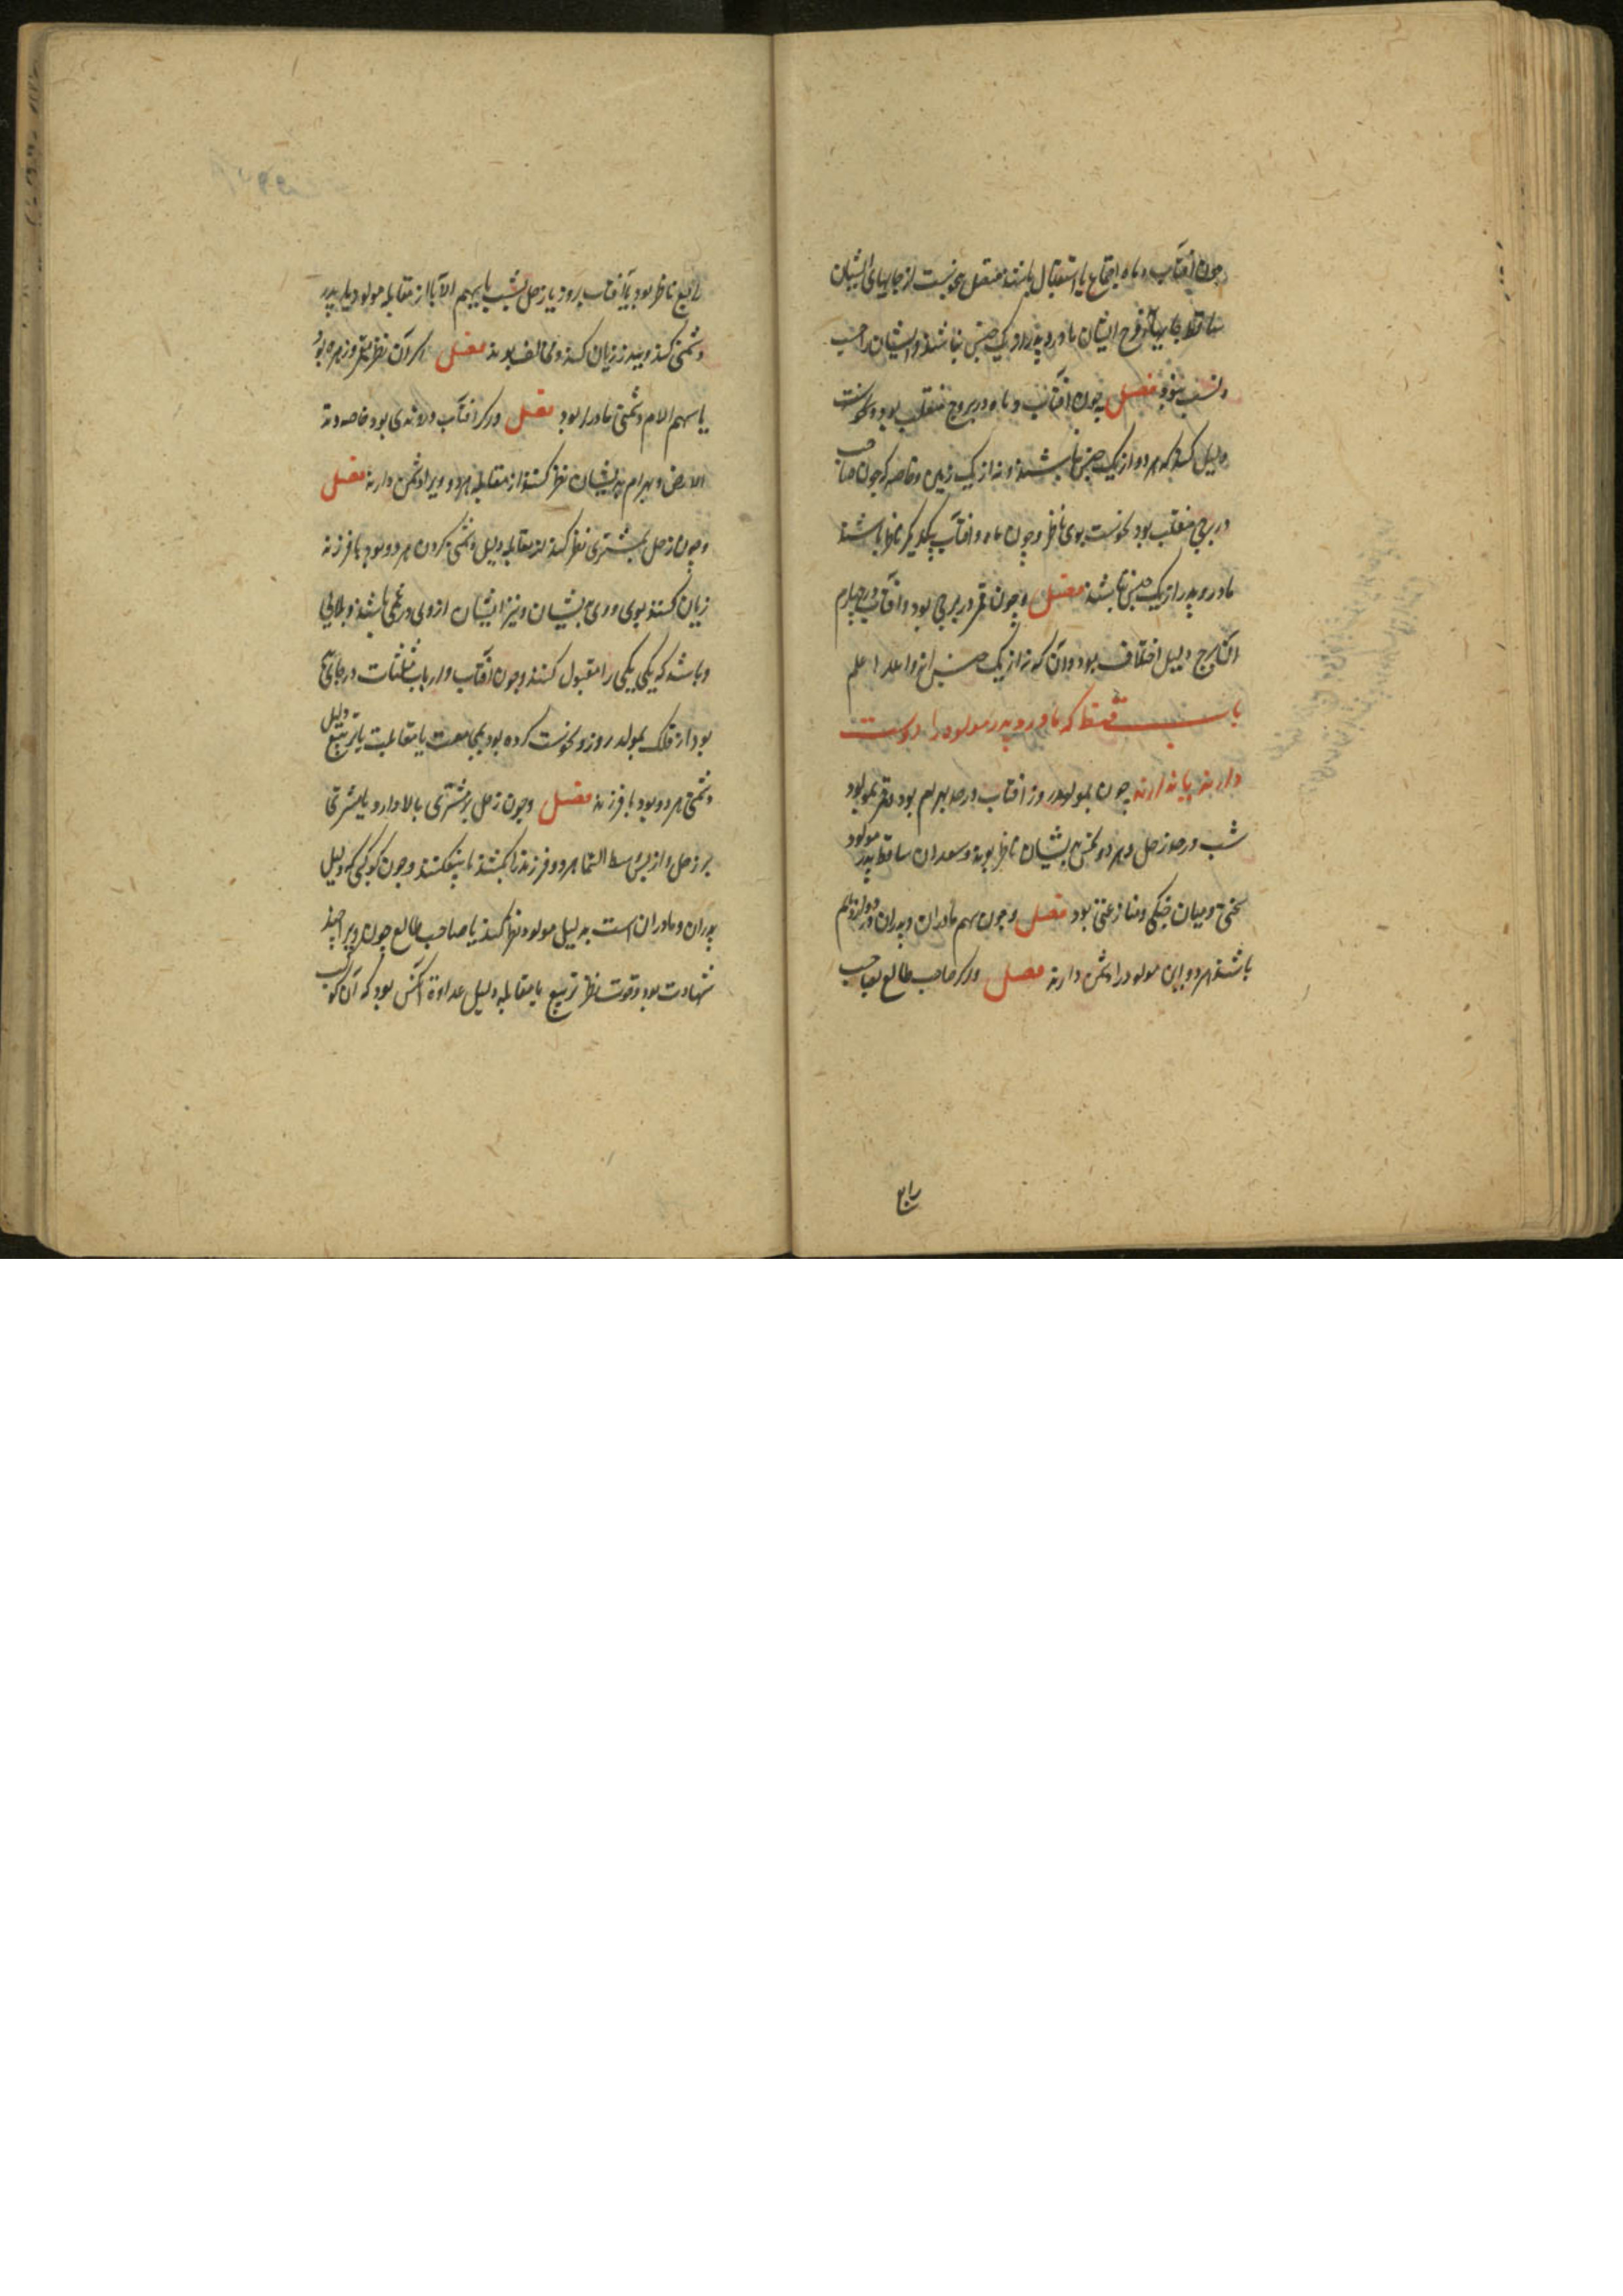 چون آفتاب و ماه اجتماع یا استقبال باشند متصل بنحوست از جایهای ایشان
ساقط فرح ایشان مادر و پدر از یک جنس نباشند و ایشان را حسب
و نسب نبود فصل چون آفتاب و ماه در بروج منقلب بود و نحوست
دلیل کند که هر دو از یک جنس نباشند و نه از یک زمین و خاصه که چون صاحب
در برجی منقلب بود نحوست بوی ناظر و چون ماه و آفتاب بیکدیگر ناظر باشند
مادر و پدر از یک جنس باشند فصل و چون قمر در برجی بود و آفتاب در چهارم
آن برج دلیل اختلاف بود و آن که نه از یک جنس اند والله اعلم
باب که مادر و پدر مولود را دوست
دارند یا ندارند چون بمولود روز آفتاب در حد بهرام بود و قمر بمولود
شب در حد زحل و هر دو نحس بایشان ناظر بوند و سعدان ساقط پدر مولود
سختی و میان جنگی و منازعتی بود فصل و چون سهم مادران و پدران در دوازدهم
باشند هر دوان مولود را دشمن دارند فصل و اگر صاحب طالع بصاحب
رابع
رابع ناظر بود یا آفتاب بروز یا زحل بشب یا بسهم الآبا از مقابله مولود با پدر
دشمنی کند و زیان کند و مخالف بوند فصل اگر آن نظر بقمر و زهره بود
یا سهم الام دشمنی مادر را بود فصل و اگر آفتاب در وتدی بود خاصه وتد
الارض و بهرام بدیشان نظر کند از مقابله هر دو ویرا دشمن دارند فصل
و چون زحل بمشتری نظر کند از مقابله دلیل دشمنی کردن هر دو بود با فرزند
زیان کنند بوی و وی بایشان و نیز ایشان از وی در غمی باشند و بلایی
و باشد که یکی یکی را مقبول کنند و چون آفتاب و ارباب مثلثات در جایی
بود از فلک بمولد روز و نحوست کرده بود بمجامعت یا مقابلت یا تربیع دلیل
دشمنی هر دو بود با فرزند فصل و چون زحل بر مشتری بالا دارد یا مشتری
بر زحل و از پس وسط السما هر دو فرزند را بکشند یا بیفکنند و چون کوکبی که دلیل
پدران و مادران است به دلیل مولود نظر کند یا صاحب طالع چون ویرا چند
شهادت بود و قوت نظر تربیع یا مقابله دلیل عداوة آنکس بود که آن کوکب